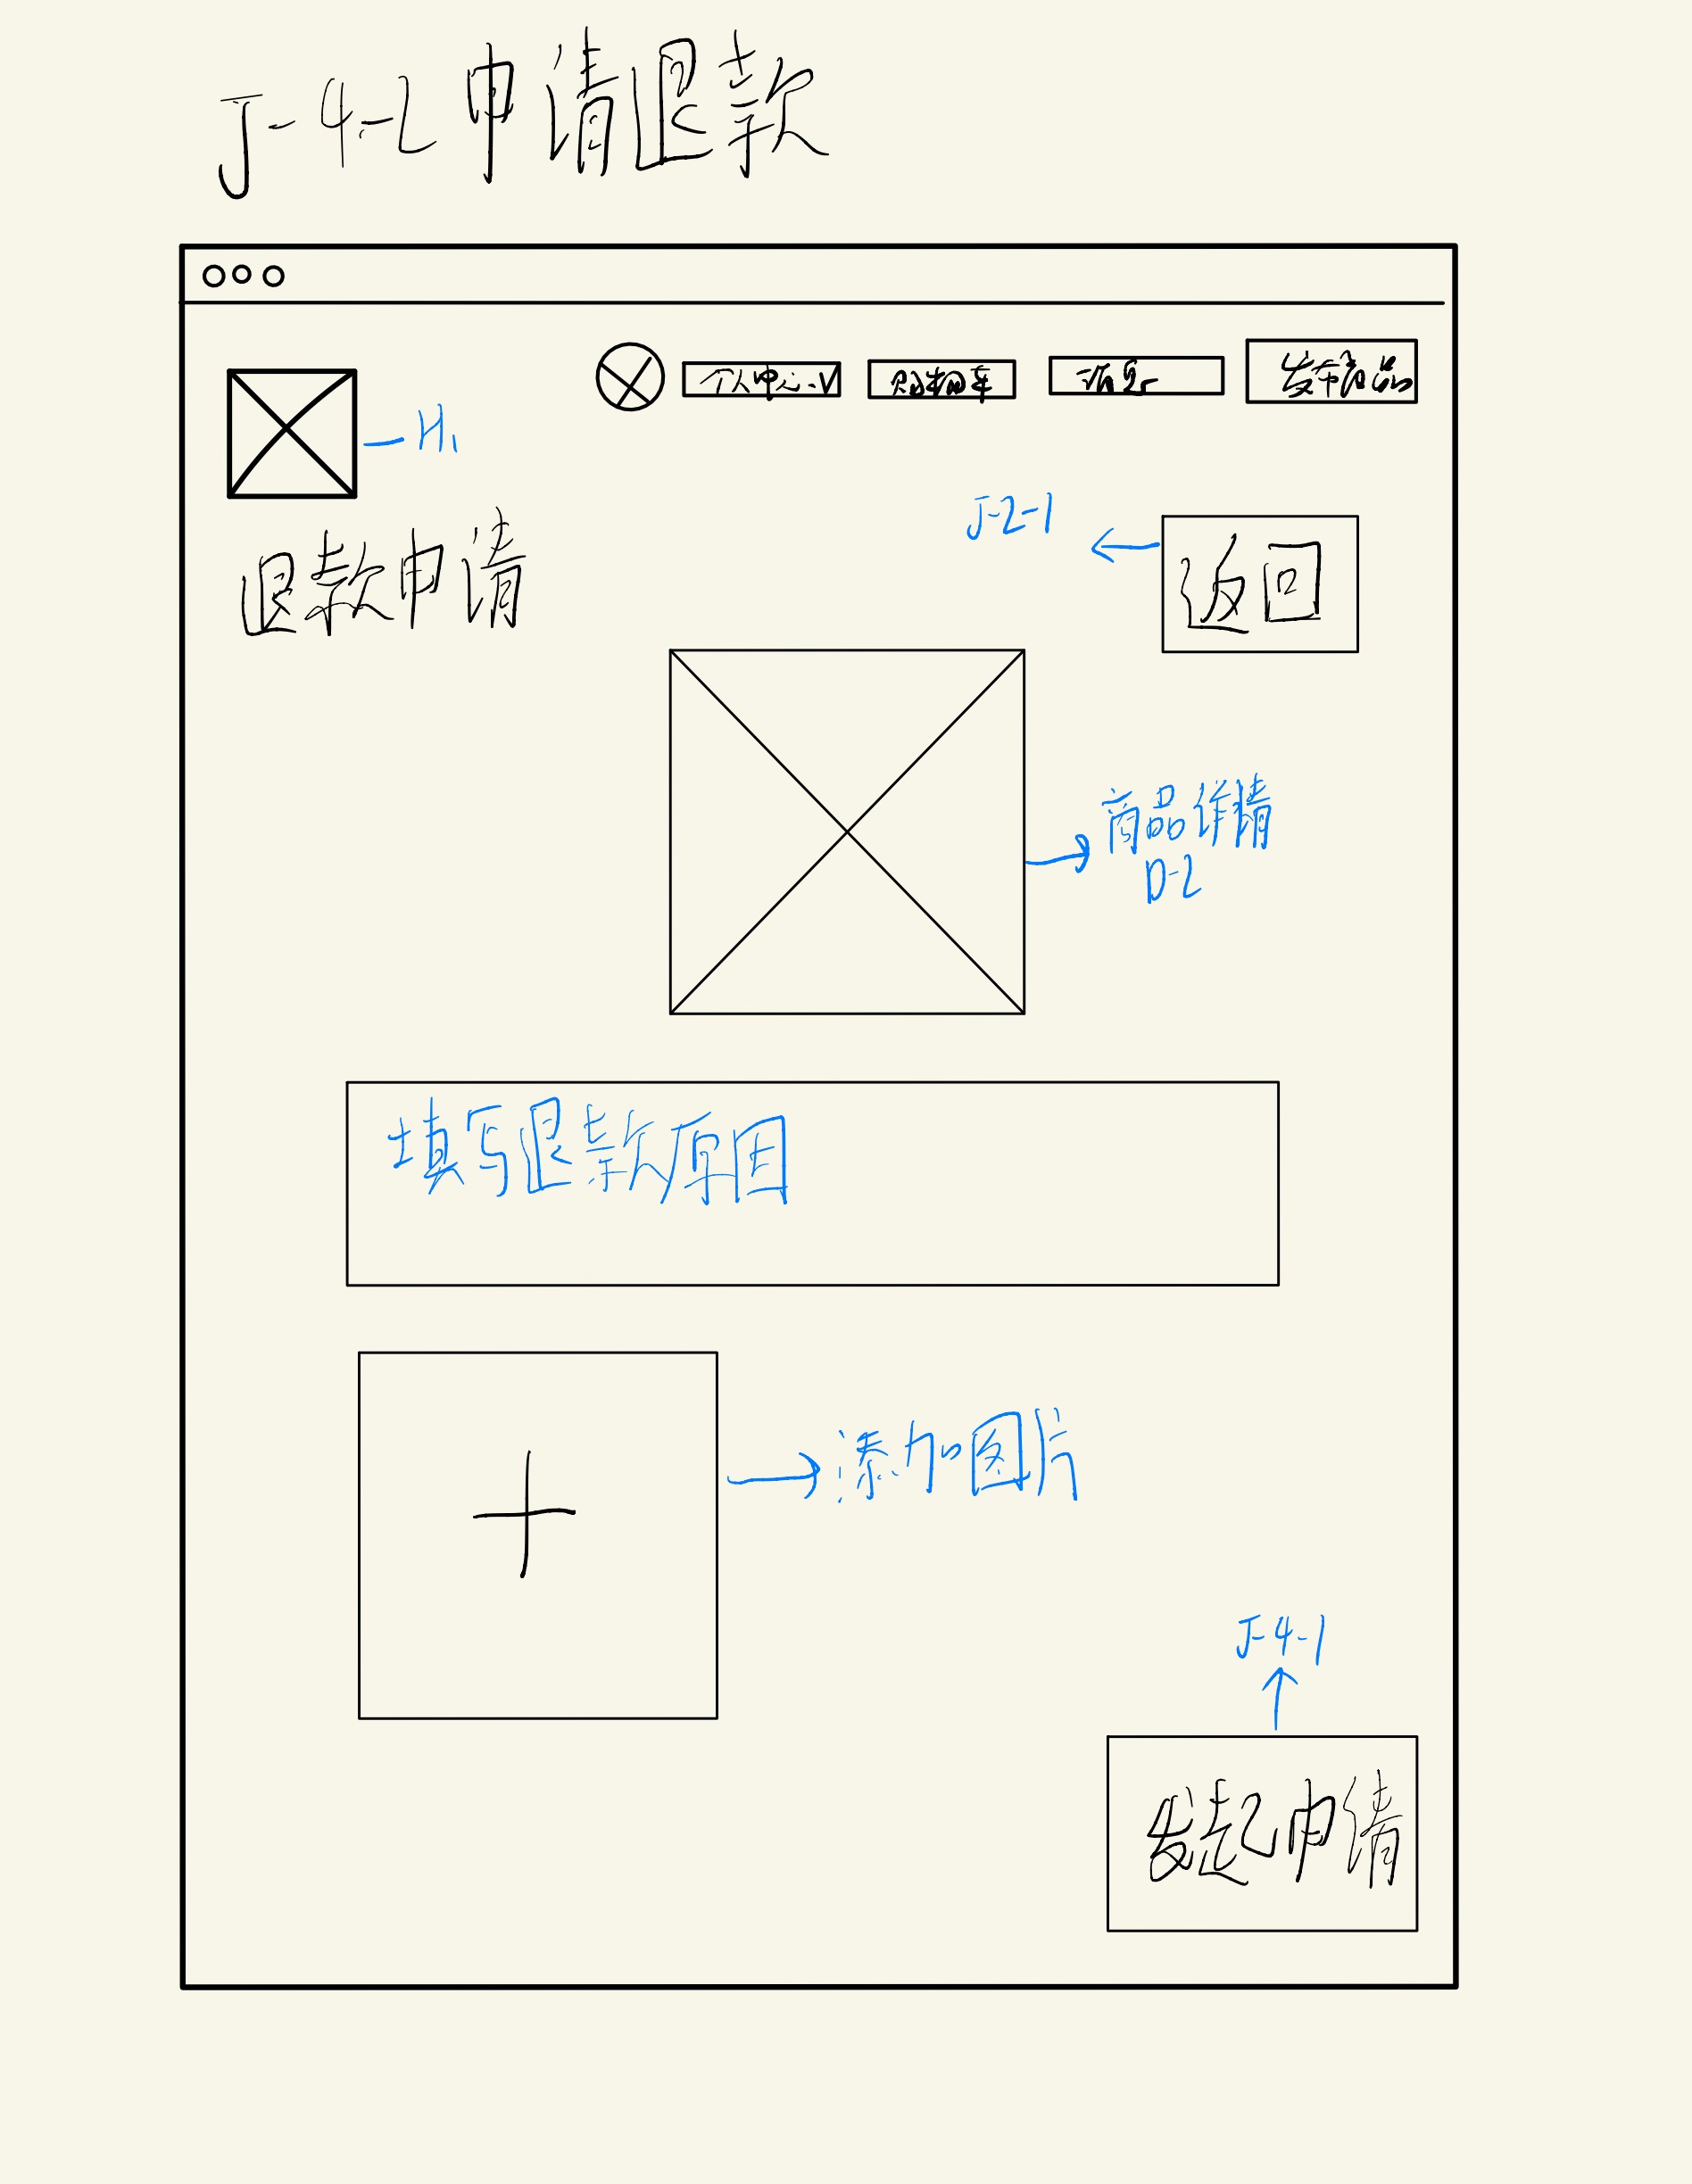 J-4-2申请退款
个人中心 V 购物车 消息 发布商品
H1
J-2-1
退款申请
返回
商品详情
D-2
填写退款原因
+
添加图片
J-4-1
发起申请